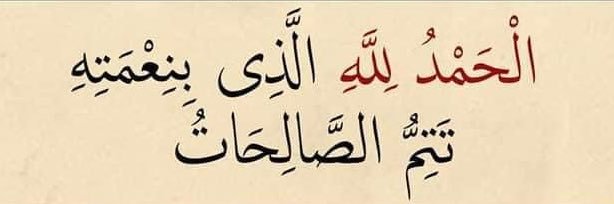 الْحَمْدُ لِلَّهِ الَّذِى بِنِعْمَتِهِ
تَتِمُّ الصَّالِحَاتُ